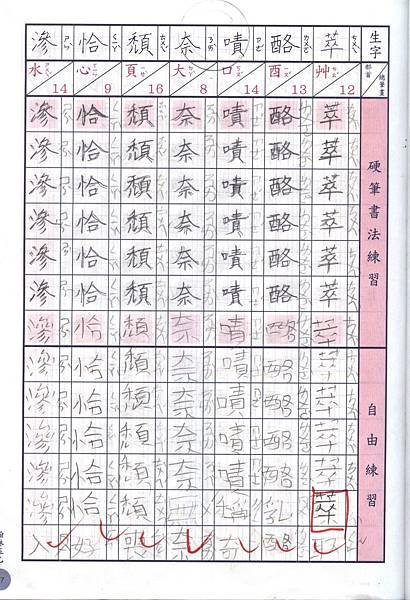 生字
部首 總筆畫
硬筆書法練習
自由練習
萃 ㄘㄨㄟˋ
艸 ㄘㄠˇ 12
萃萃萃萃萃萃萃萃萃萃萃萃取
酪 ㄌㄨㄛˋ
酉 ㄧㄡˇ 13
酪酪酪酪酪酪酪酪酪酪酪乳酪
嘖 ㄗㄜˊ
口 ㄎㄡˇ 14
嘖嘖嘖嘖嘖嘖嘖嘖嘖嘖嘖稱奇
奈 ㄋㄞˋ
大 ㄉㄚˋ 8
奈奈奈奈奈奈奈奈奈奈奈無奈
頹 ㄊㄨㄟˊ
頁 ㄧㄝˋ 16
頹頹頹頹頹頹頹頹頹頹頹頹喪
恰 ㄑㄧㄚˋ
心 ㄒㄧㄣ 9
恰恰恰恰恰恰恰恰恰恰恰恰好
滲 ㄕㄣˋ
水 ㄕㄨㄟˇ 14
滲滲滲滲滲滲滲滲滲滲滲滲入